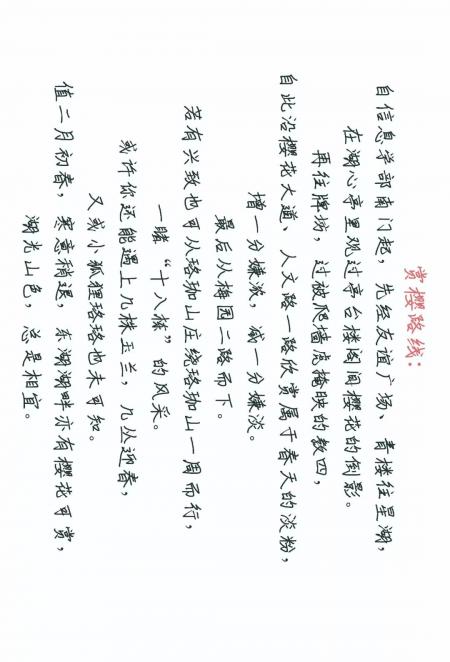 赏樱路线：
自信息学部南门起，先经友谊广场、青楼往星湖，
在湖心亭里观过亭台楼阁间樱花的倒影。
再往牌坊，过被爬墙虎掩映的教四，
自此沿樱花大道、人文路一路欣赏属于春天的淡粉，
增一分嫌浓，减一分嫌淡。
最后从梅园二路而下。
若有兴致也可从珞珈山庄绕珞珈山一周而行，
一睹“十八栋”的风采。
或许你还能遇上几株玉兰，几丛迎春，
又或小狐狸珞珞也未可知。
值二月初春，寒意稍退，东湖湖畔亦有樱花可赏，
湖光山色，总是相宜。